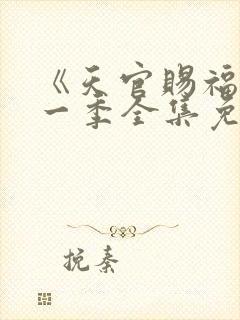 《天官赐福
一季全集免
挽秦